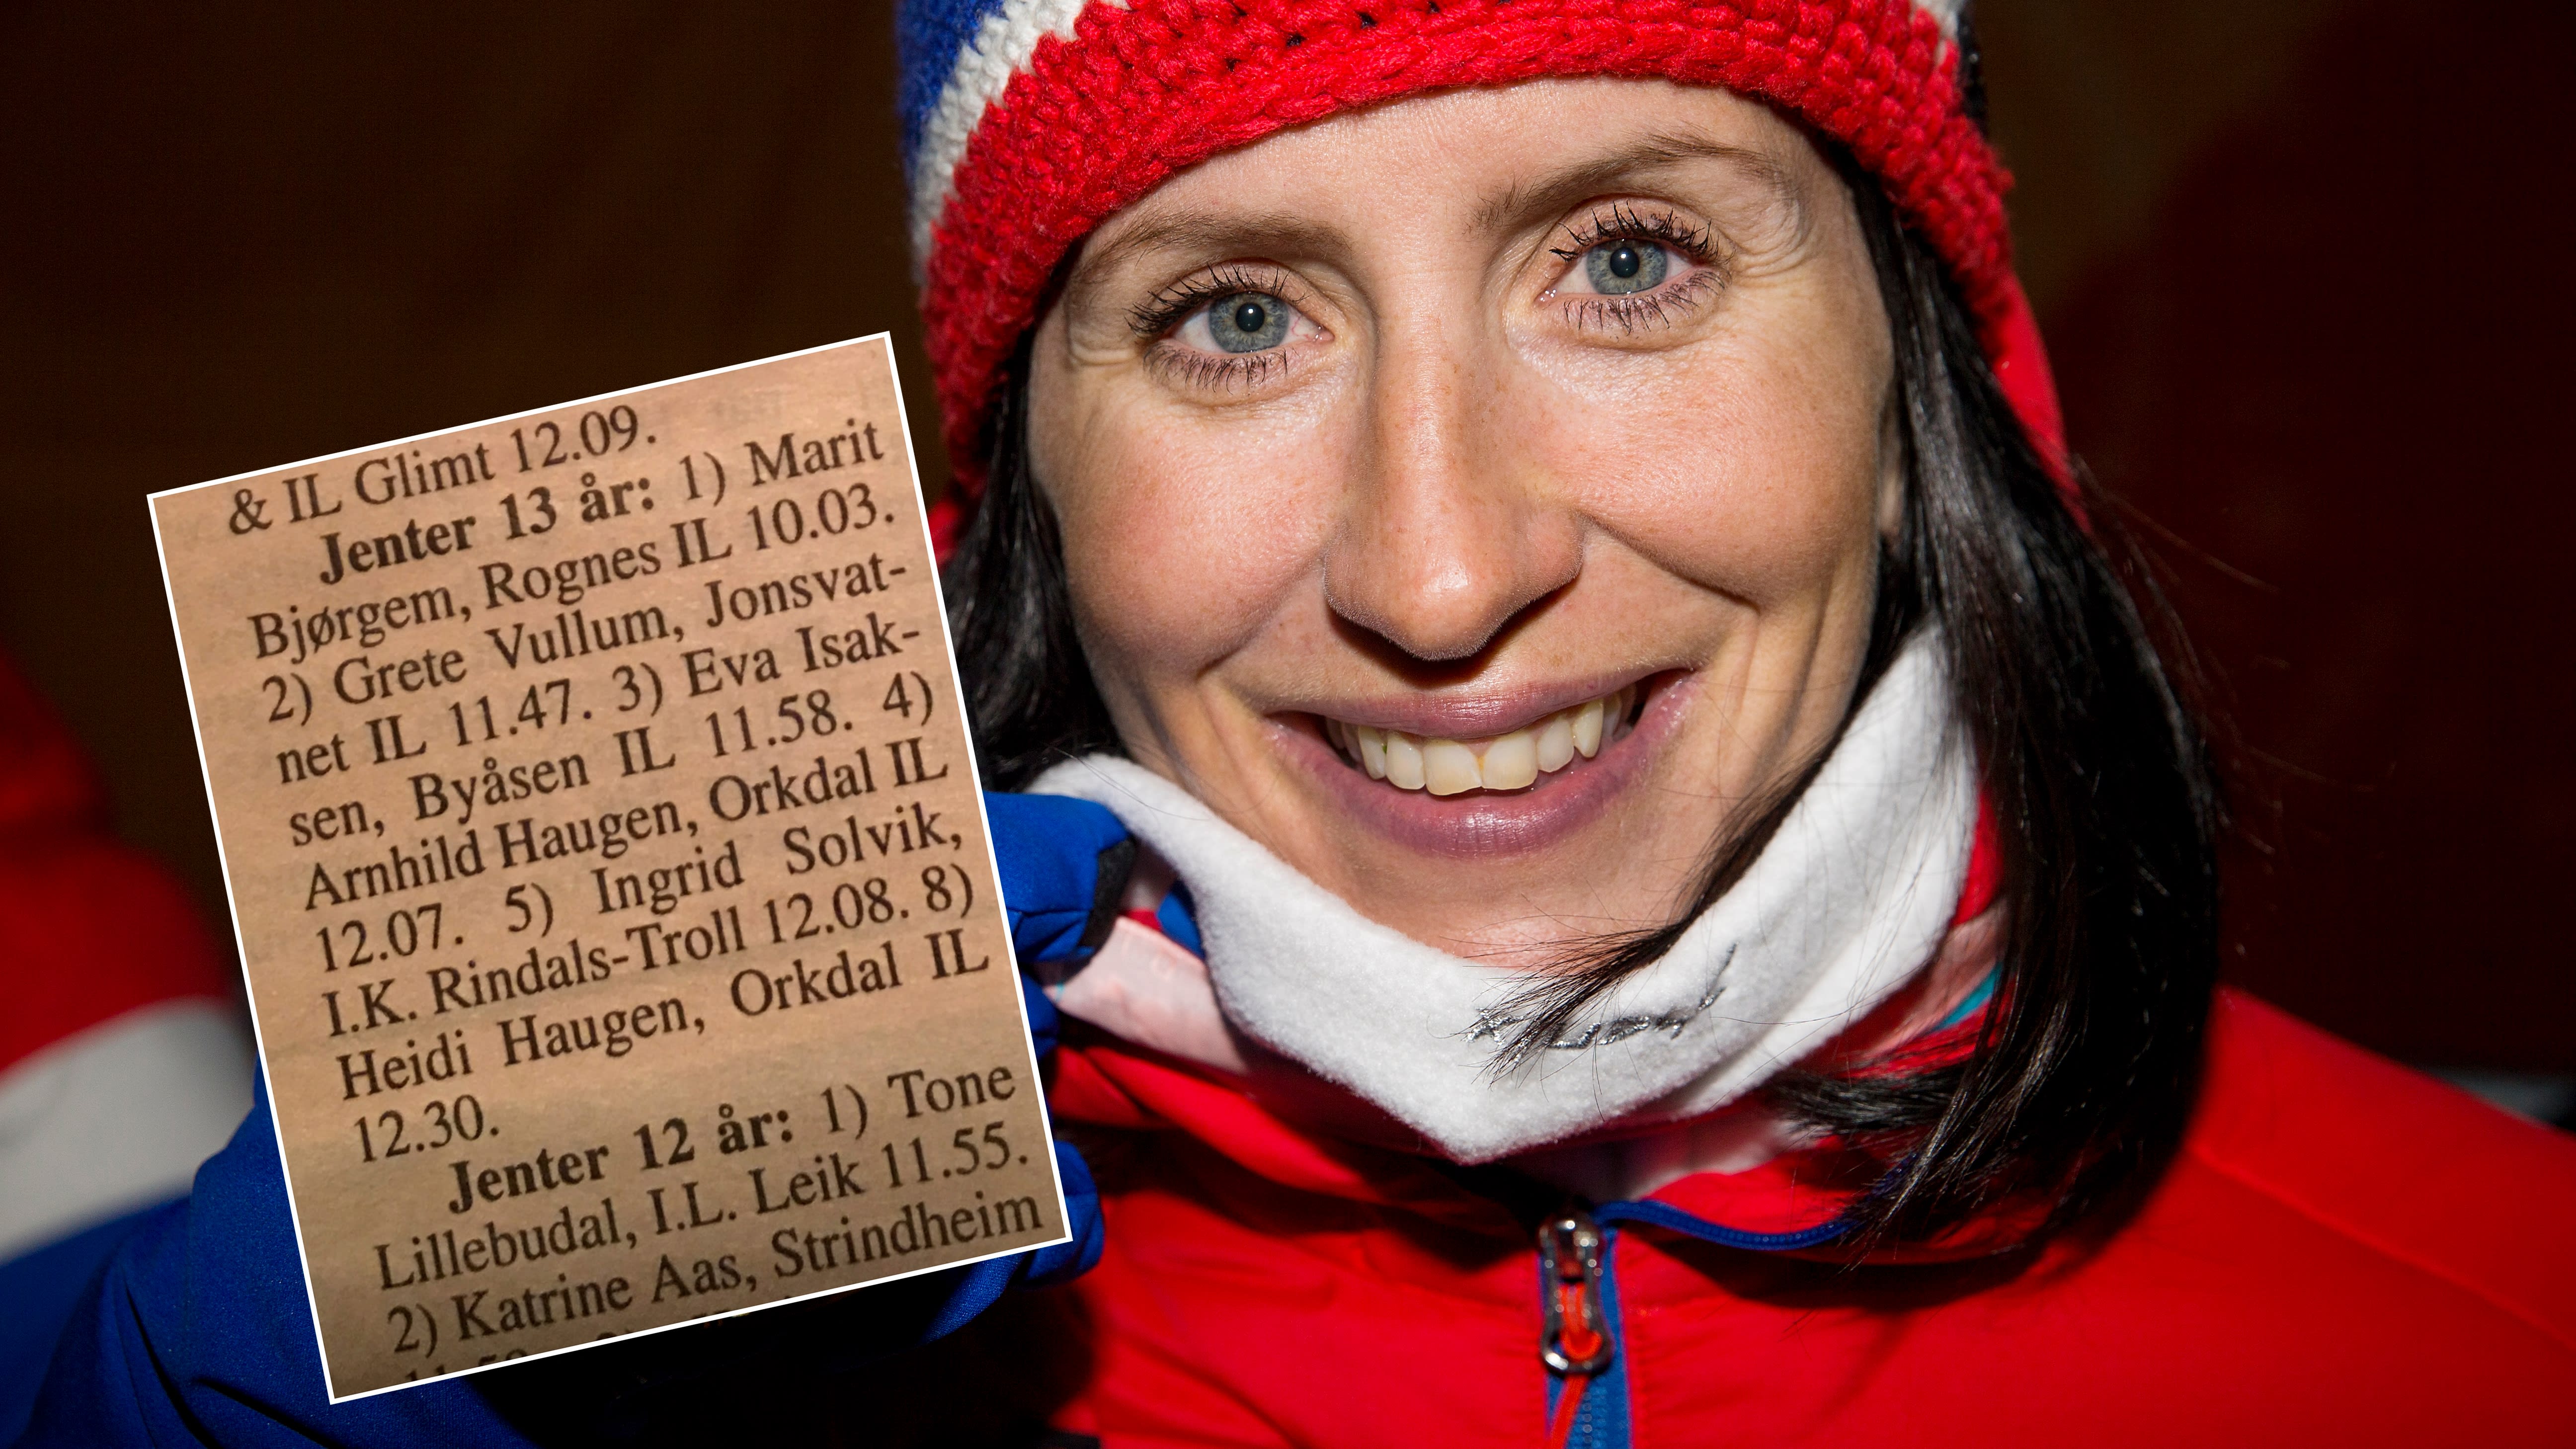 & IL Glimt 12.09.
Jenter 13 år: 1) Marit
Bjørgem, Rognes IL 10.03.
2) Grete Vullum, Jonsvat-
net IL 11.47. 3) Eva Isak-
sen, Byåsen IL 11.58. 4)
Arnhild Haugen, Orkdal IL
12.07. 5) Ingrid Solvik,
I.K. Rindals-Troll 12.08. 8)
Heidi Haugen, Orkdal IL
12.30.
Jenter 12 år: 1) Tone
Lillebudal, I.L. Leik 11.55.
2) Katrine Aas, Strindheim